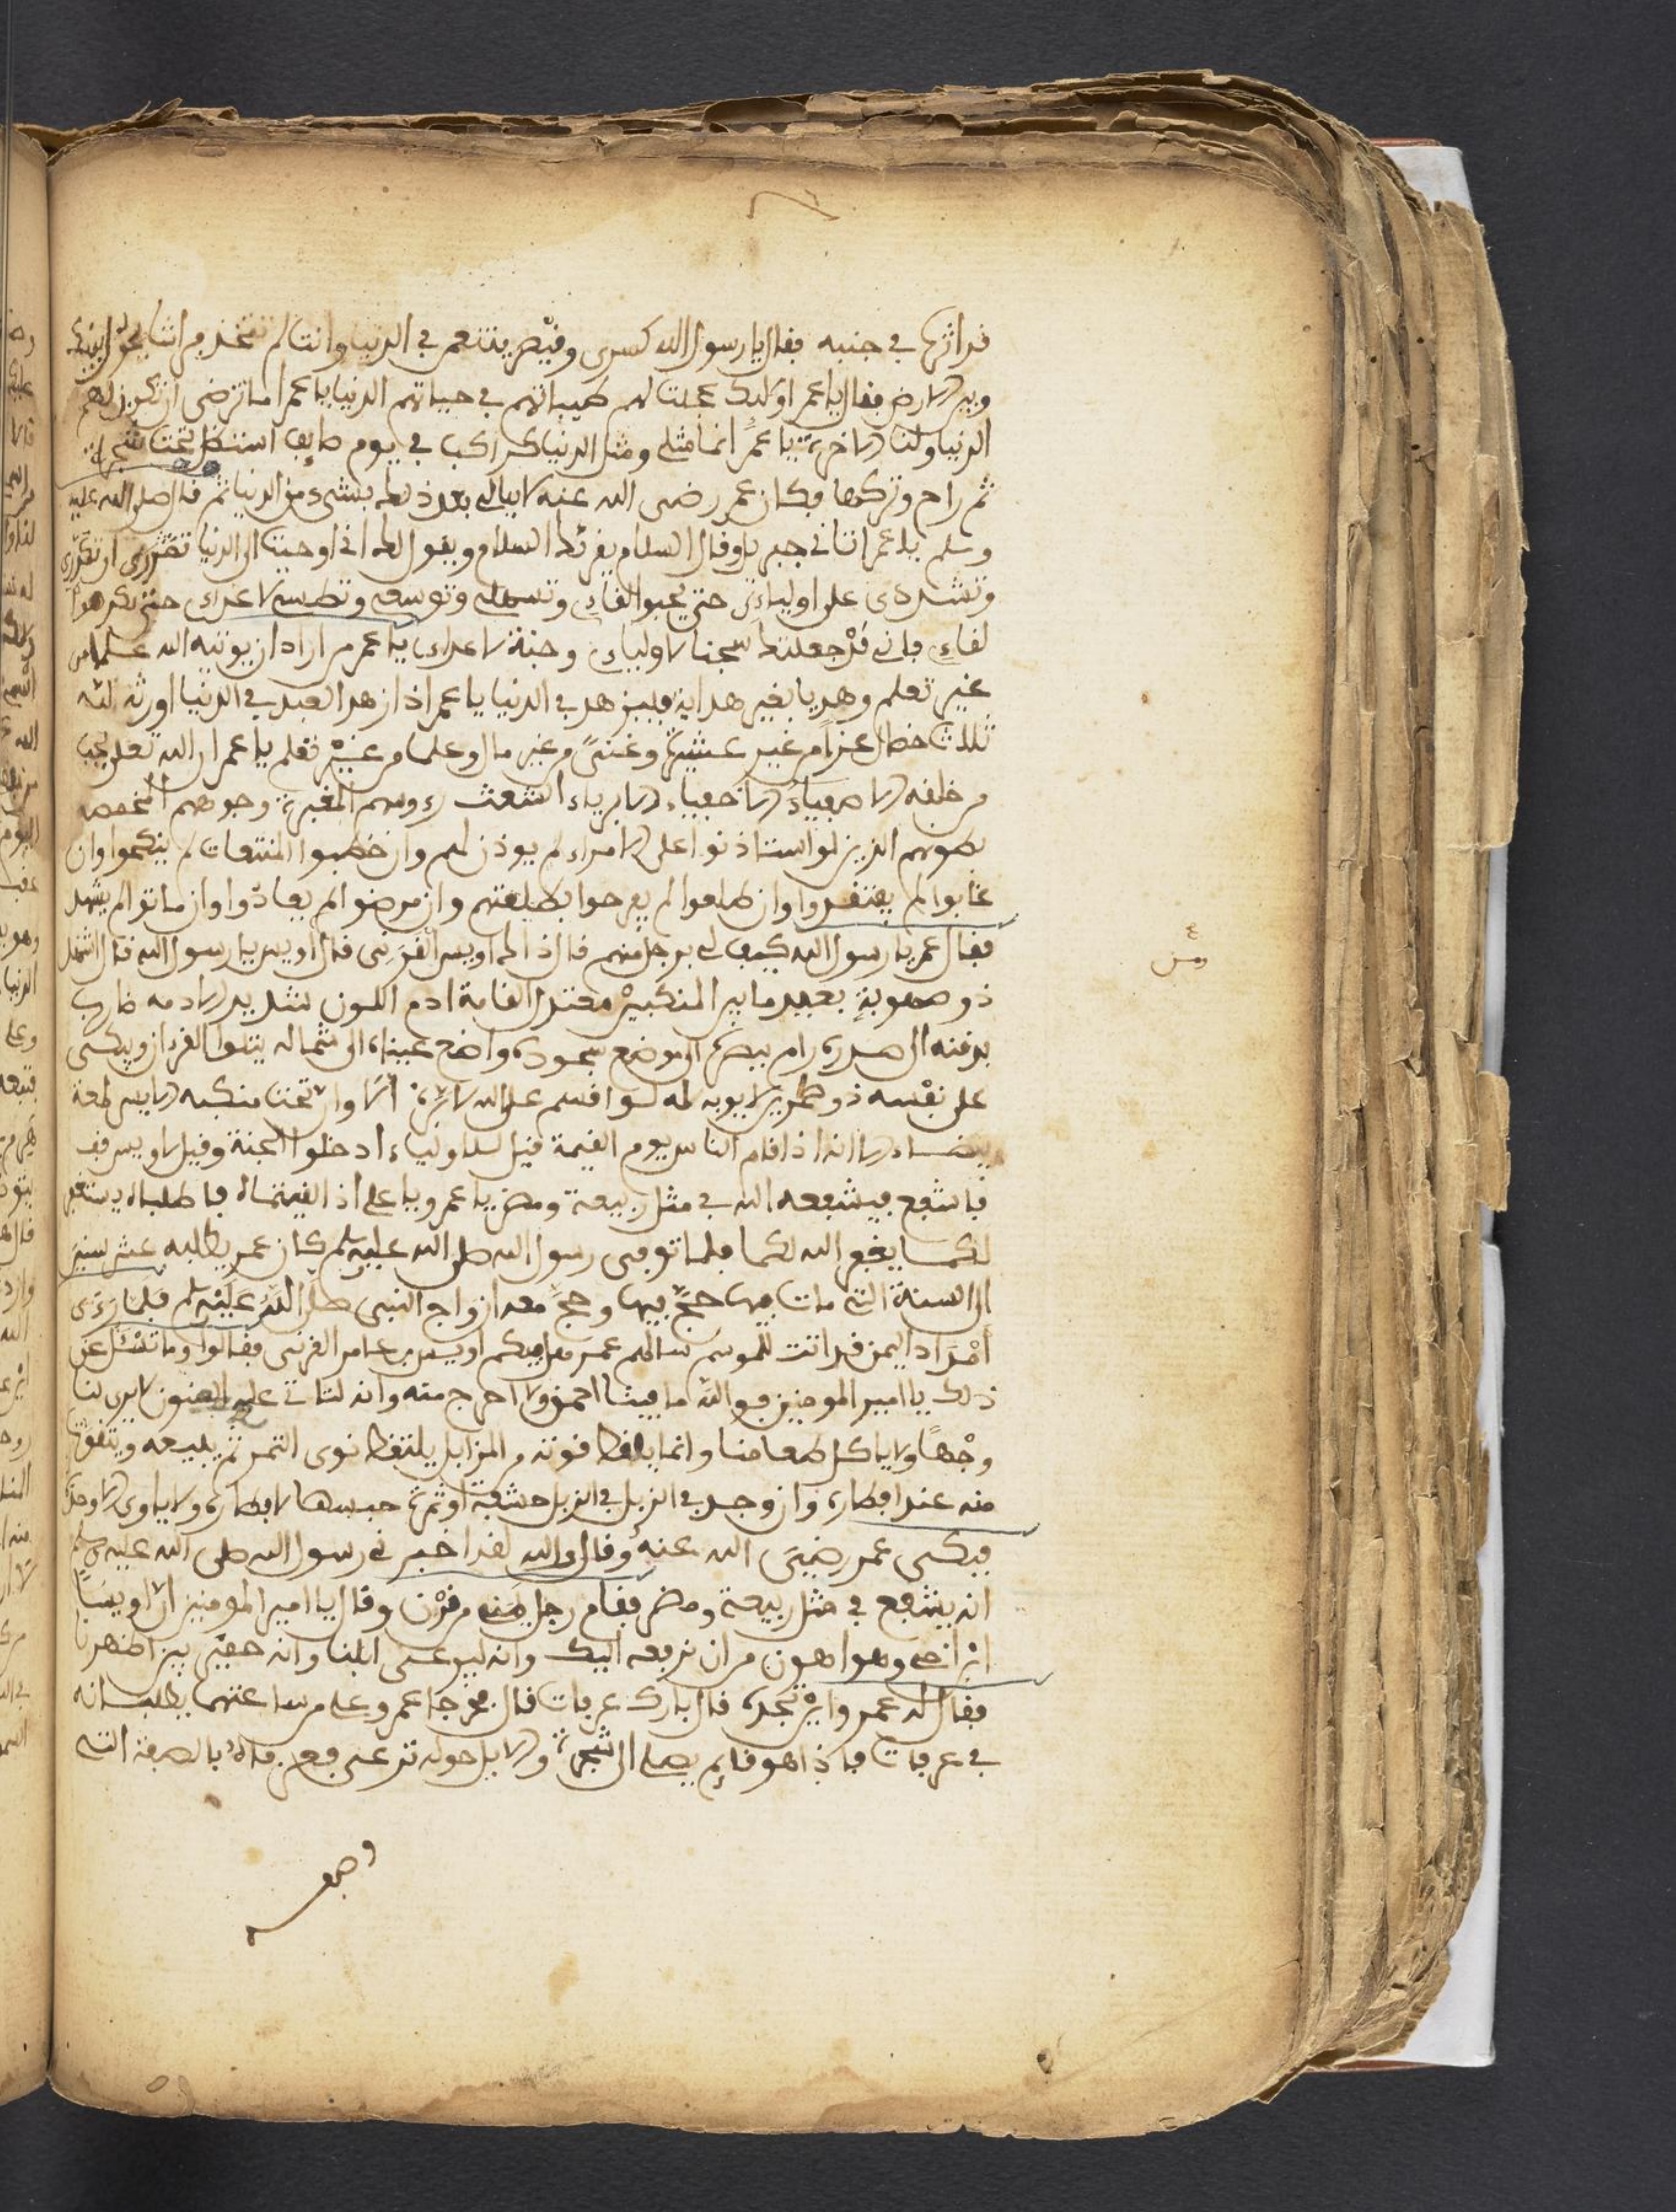 قد اثرت في جنبه فقال يا رسول الله كسرى وقيصر يتنعم في الدنيا وانت لم تتخذ فراشا يحول بينك
وبين الارض فقال يا عمر اولئك عجلت لهم طيباتهم في حياتهم الدنيا يا عمر اما ترضى ان تكون لهم
الدنيا ولنا الاخرة يا عمر انما مثلي ومثل الدنيا كراكب في يوم صايف استظل تحت شجرة
ثم راح وتركها فكان عمر رضى الله عنه لا يبالي بعد ذلك بشيء من الدنيا ثم قال صلى الله عليه
وسلم يا عمر اتاني جبريل وقال السلام يقرئك السلام ويقول لك اني اوحيت الى الدنيا تمرري او تكدري
وتشددي على اوليائي حتى يحبوا لقاءي وتسهلي وتوسعي وتطيبي لاعدائي حتى يكرهوا
لقاءي فاني قد جعلتك سجنا لاوليائي وجنة لاعدائي يا عمر من اراد ان يوتيه الله علما من
غير تعلم وهديا بغير هداية فليزهد في الدنيا يا عمر اذا زهد العبد في الدنيا اورثه الله
ثلاث خصال عزا من غير عشيرة وغنى من غير مال وعلما من غير تعلم يا عمر ان الله تعلى يحب
من خلقه الاصفياء الاخفياء الابرياء الشعث رءوسهم المغبرة وجوههم الخمصة
بطونهم الذين لو استاذنوا على الامراء لم يوذن لهم وان خطبوا المتنعمات لم ينكحوا وان
غابوا لم يفتقدوا وان طلعوا لم يفرحوا بطلعتهم وان مرضوا لم يعادوا وان ماتوا لم يشهدوا
فقال عمر يا رسول الله كيف لي برجل منهم قال ذالك اويس القرني قال اويس يا رسول الله قال اشهل
ذو صهوبة بعيد ما بين المنكبين معتدل القامة ادم اللون شديد الادمة ضارب
بذقنه الى صدره رام ببصره الى موضع سجوده واضع يمينه الى شماله يتلوا القرءان ويبكي
على نفسه ذو طمرين لا يوبه له لو اقسم على الله لابره الا وان تحت منكبه الايسر لمعة
بيضاء الا انه اذا قام الناس يوم القيمة قيل للاولياء ادخلوا الجنة وقيل لاويس قف
فاشفع فيشفعه الله في مثل ربيعة ومضر يا عمر ويا علي اذا لقيتماه فاطلباه يستغفر
لكما يغفر الله لكما فلما توفي رسول الله صلى الله عليه وسلم كان عمر يطلبه عشر سنين
الى السنة التي مات فيها حج فيها وحج معه ازواج النبي صلى الله عليه وسلم فلما رءى
امراد اليمن قد اتت للموسم سالهم عمر هل فيكم اويس بن عامر القرني فقالوا وما تسئل عن
ذلك يا امير المومنين فوالله ما فينا احمق ولا احرج منه وانه لتاتي عليه السنون لا يرى لنا
وجها ولا ياكل طعامنا وانما يلقط قوته من المزابل يلتقط نوى التمر ثم يبيعه ويتقوت
منه عند افطاره وان وجد في الزبل حشفة او ثمرة حبسها لافطاره ولا ياوي الا وحده
فبكى عمر رضي الله عنه وقال والله لقد اخبرني رسول الله صلى الله عليه وسلم
انه يشفع في مثل ربيعة ومضر فقام رجل منه من قرن وقال يا امير المومنين ان اويسا
ابن اخي وهو اهون من ان نرفعه اليك وانه ليرعى ابلنا وانه حقير بين اظهرنا
فقال له عمر واين تجده قال بارك عرفات قال فخرجا عمر وعلي من ساعتهما يطلبانه
في عرفات فاذا هو قايم يصلي الى شجرة والابل حوله ترعى فعرفاه بالصفة التي
وصفه